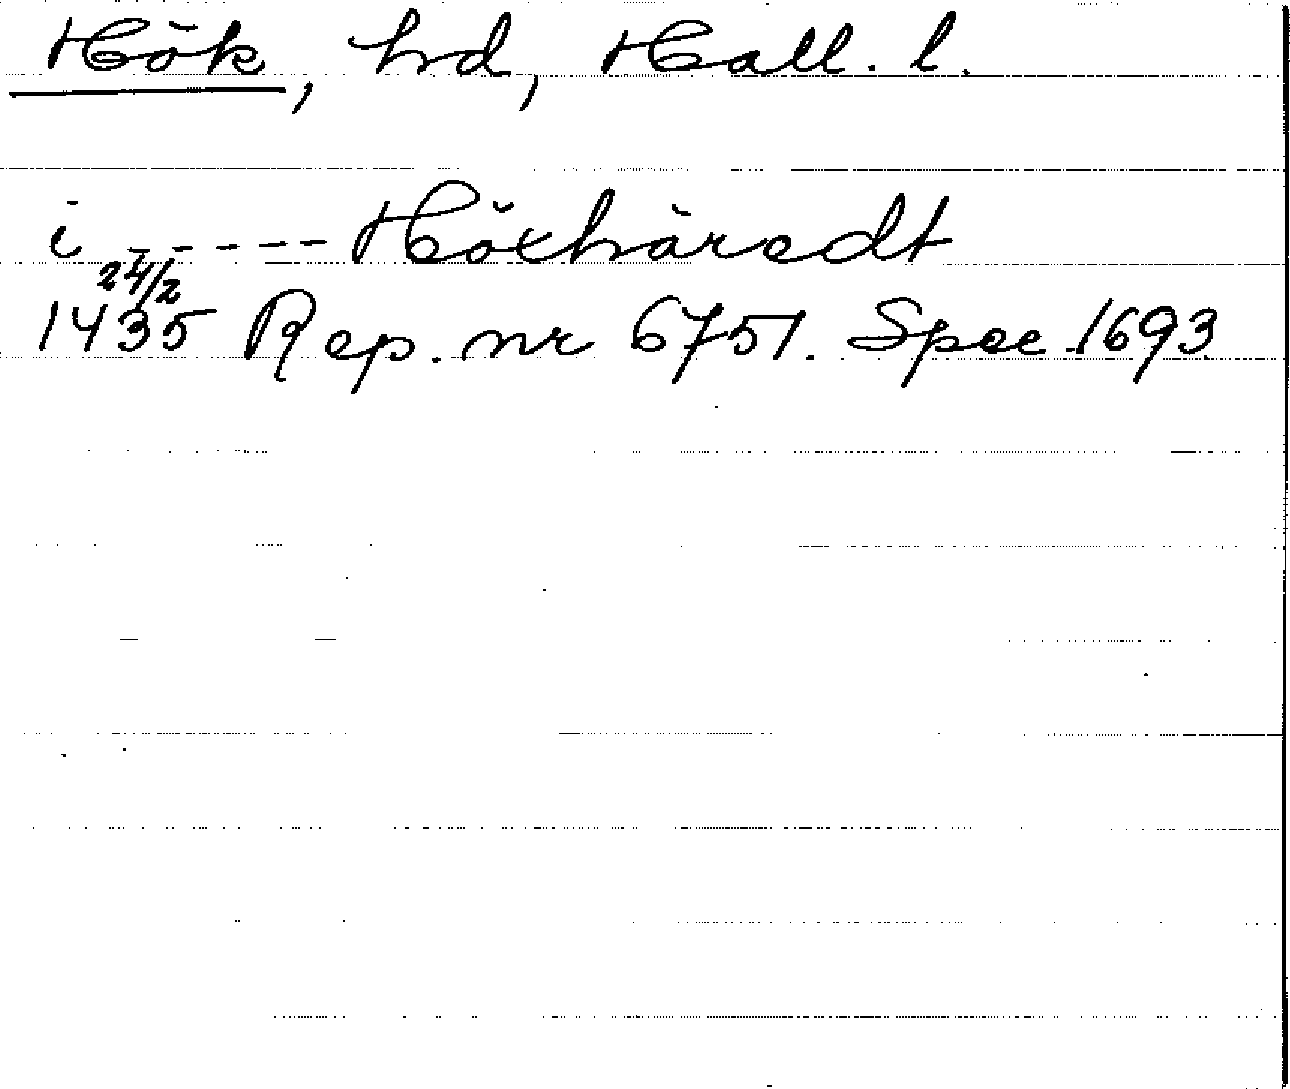 Hök, hd, Hall. l.
i - - - - - Höxhäredt
24/2
1435 Rep. nr 6751. Spec. 1693